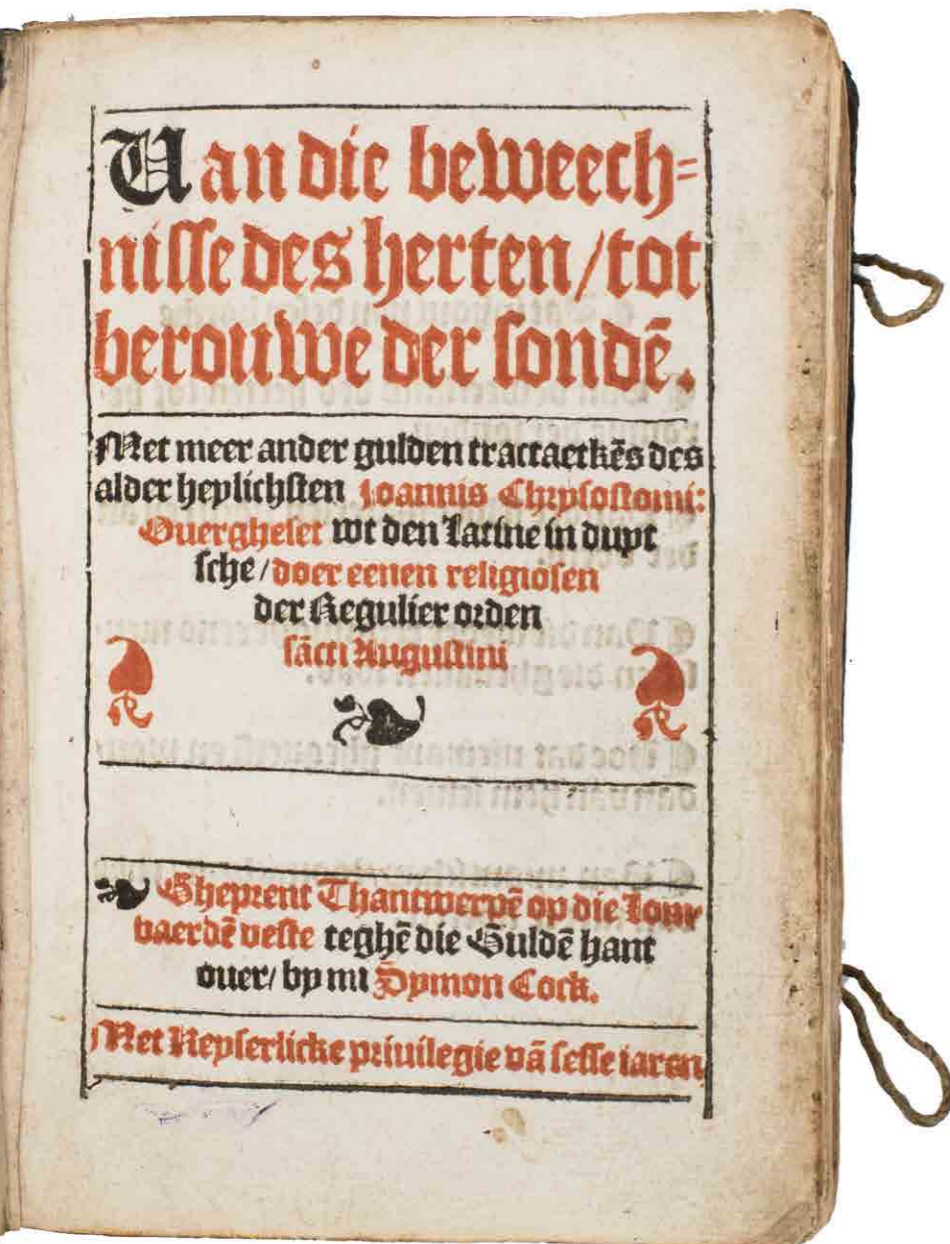 Van die beweech=
nisse des herten/tot
berouwe der sondē.
Met meer ander gulden tractaetkēs des
alder heylichsten Joannis Chrysostomi:
Ouerghеset wt den Latine in duyt
sche/doer eenen religiosen
der Regulier orden
sācti Augustini
Gheprent Thantwerpē op die Lom
vaerdē veste teghē die Guldē hant
ouer/by mi Symon Cock.
Met Keyserlicke priuilegie vā sesse iaren